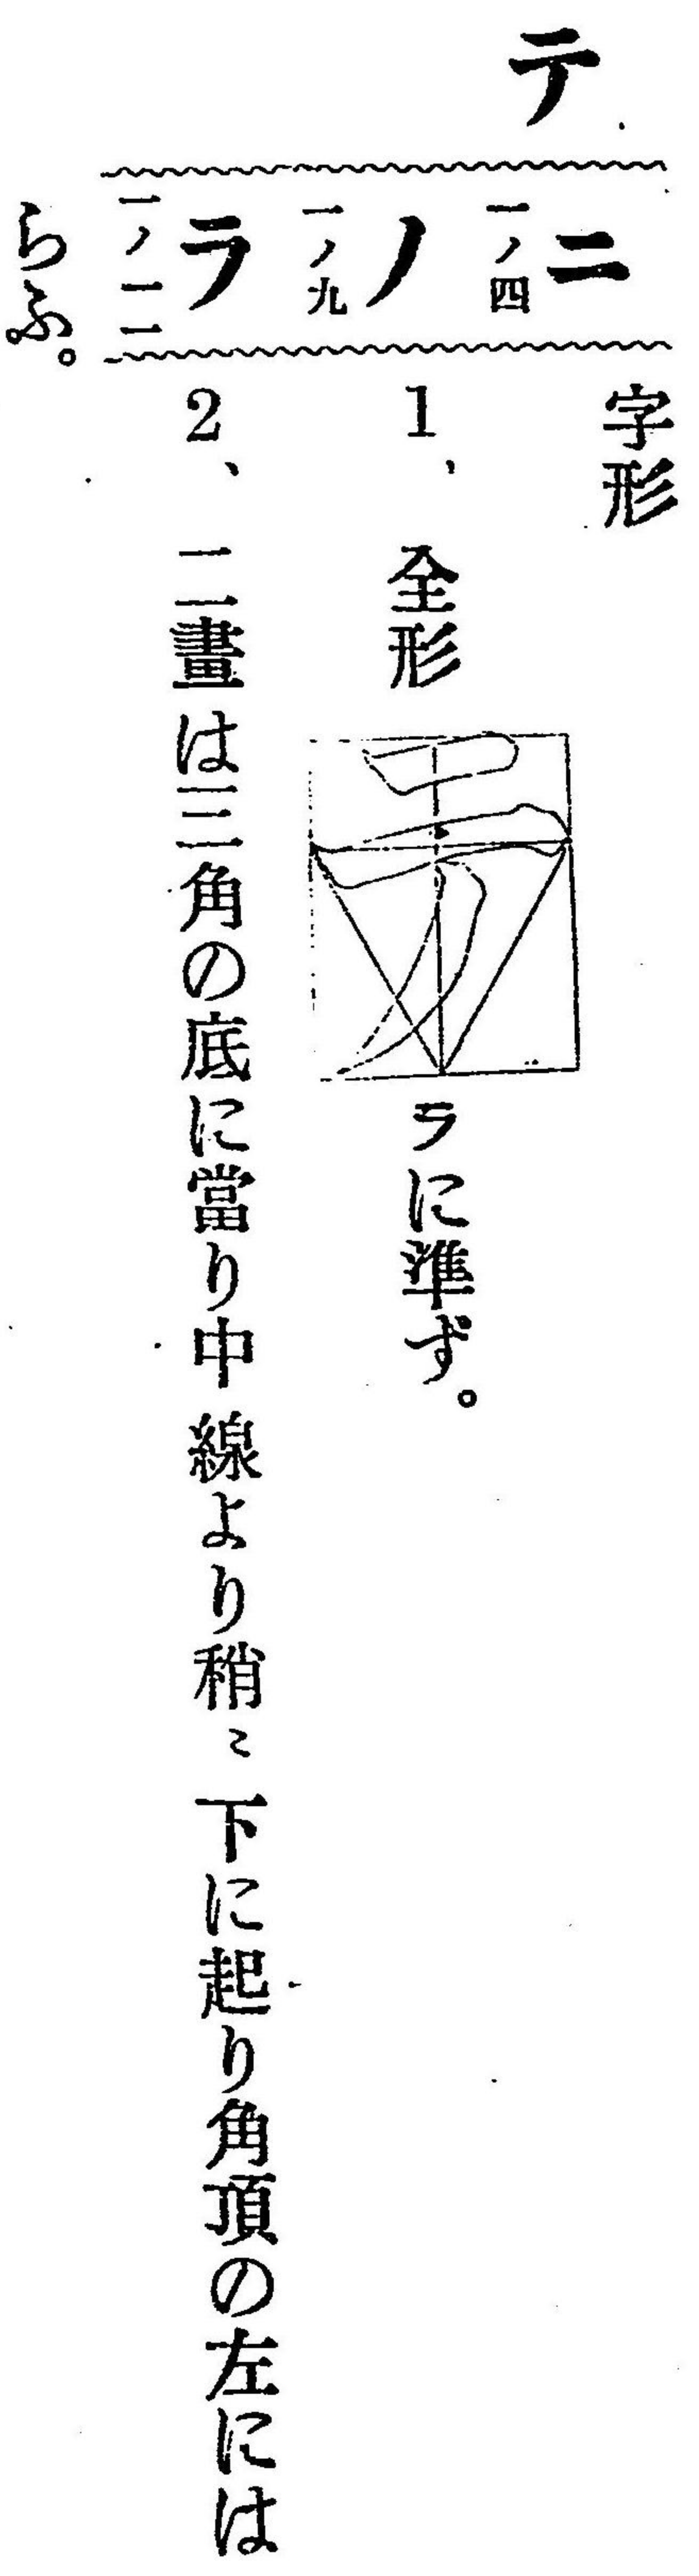 テ
ニ
一ノ四
ノ
一ノ九
ラ
一ノ一一
字形
1、全形
ラに準ず。
2、二畫は三角の底に當り中線より稍〻下に起り角頂の左には
らふ。